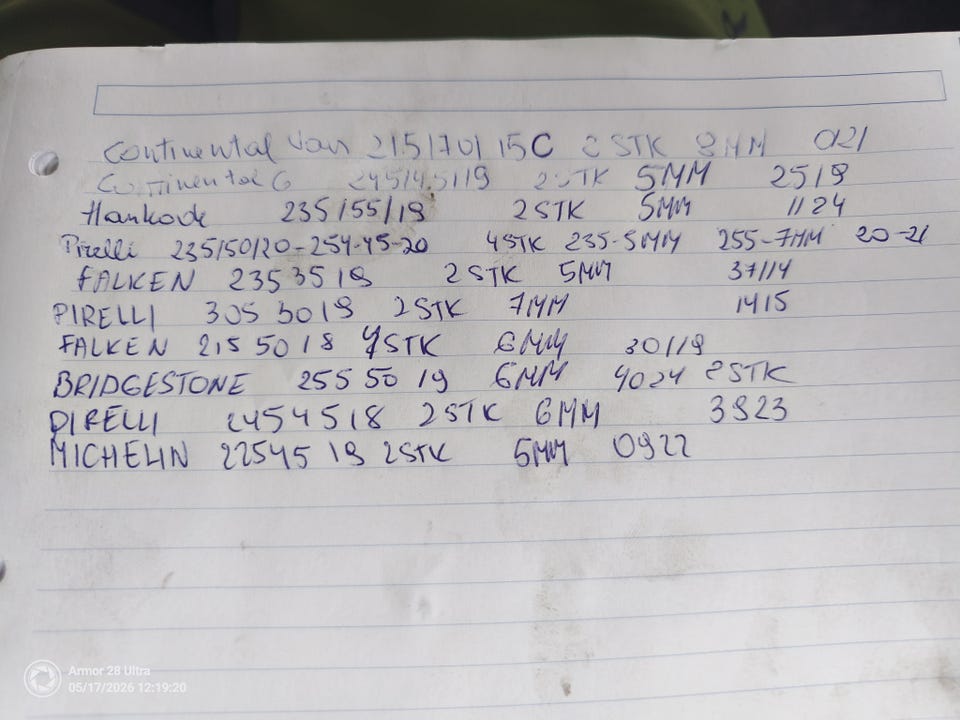 Continental Van 215/70/15C 2 STK 8MM 0121
Continental 6 245/45/19 2STK 5MM 2519
Hankook 235/55/19 2STK 5MM 1124
Pirelli 235/50/20-254-45-20 4STK 235-5MM 255-7MM 20-21
FALKEN 235 35 19 2 STK 5MM 37/14
PIRELLI 305 30 19 2 STK 7MM 1415
FALKEN 215 50 18 4STK 6MM 30/19
BRIDGESTONE 255 50 19 6MM 4024 2STK
PIRELLI 245 45 18 2STK 6MM 3923
MICHELIN 22545 19 2STK 5MM 0922
Armor 28 Ultra
05/17/2026 12:19:20